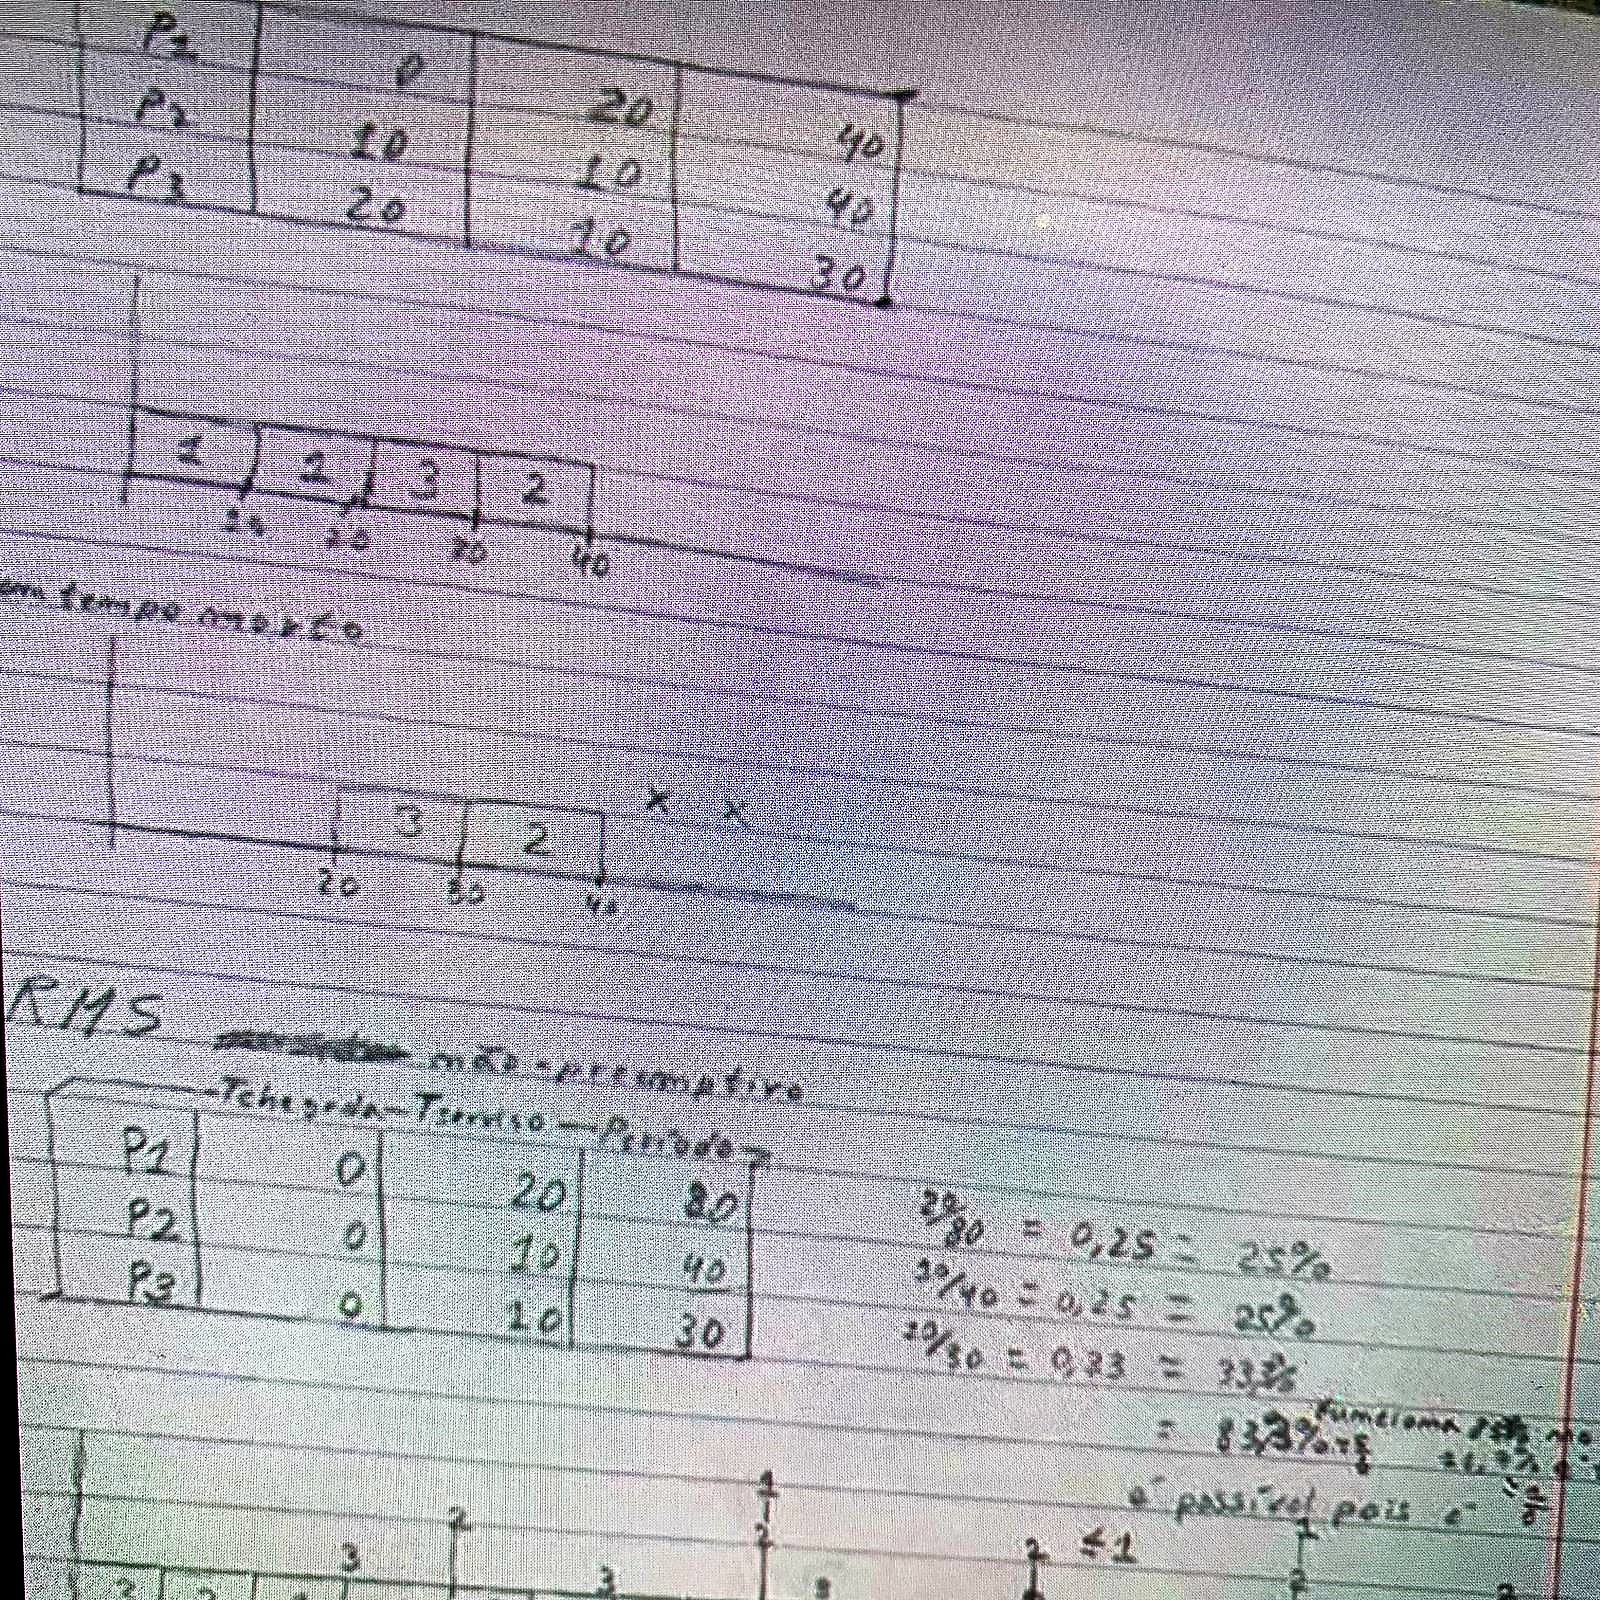 P1 0 20 40
P2 10 10 40
P3 20 10 30
1 1 3 2
10 20 30 40
em tempo morto
3 2 x x
20 30 40
RMS não-preemptivo
Tchegada Tserviso Período
P1 0 20 80
20/80 = 0,25 = 25%
P2 0 10 40
10/40 = 0,25 = 25%
P3 0 10 30
10/30 = 0,33 = 33,3%
= 83,3% funciona
é possível pois é
≤1
1
2 2 2 1
3 3 3 2
2